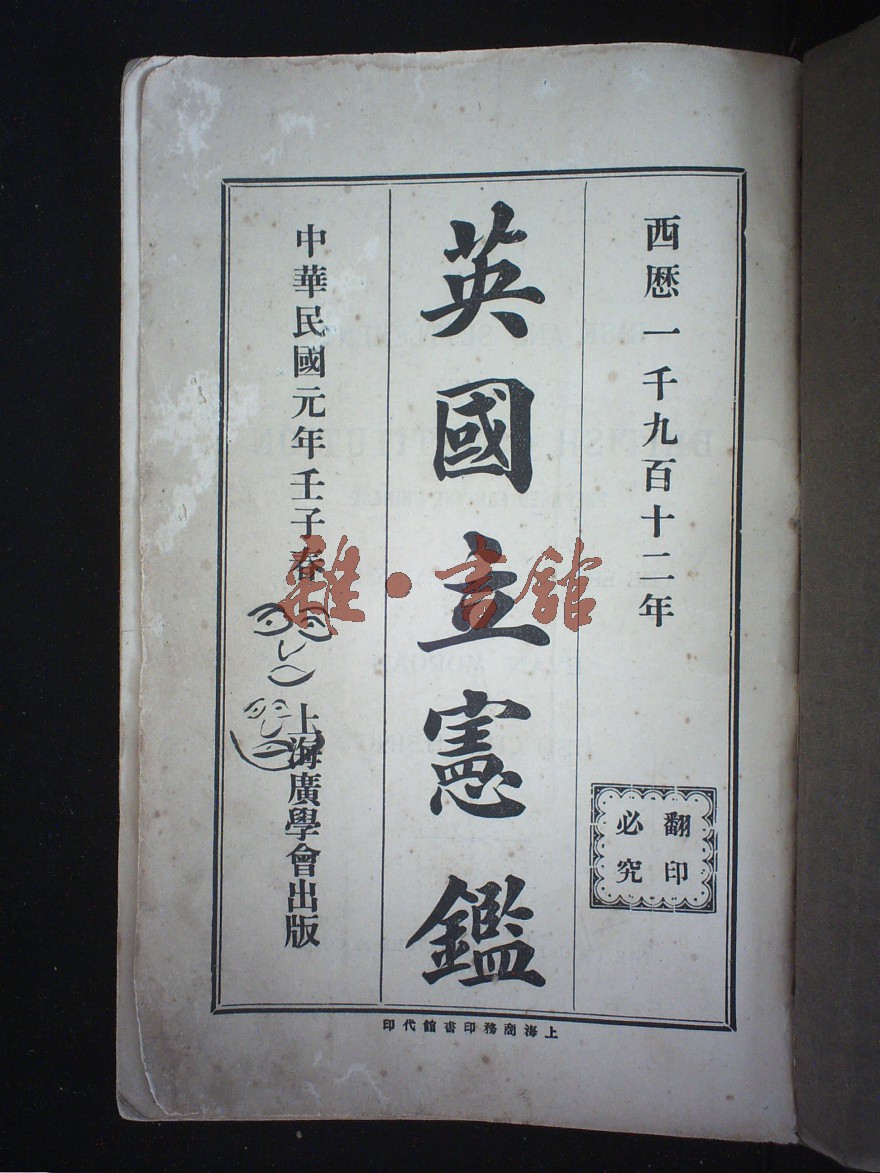 西歷一千九百十二年
翻印
必究
英國立憲鑑
中華民國元年壬子春
上海廣學會出版
上海商務印書館代印
雜·書館